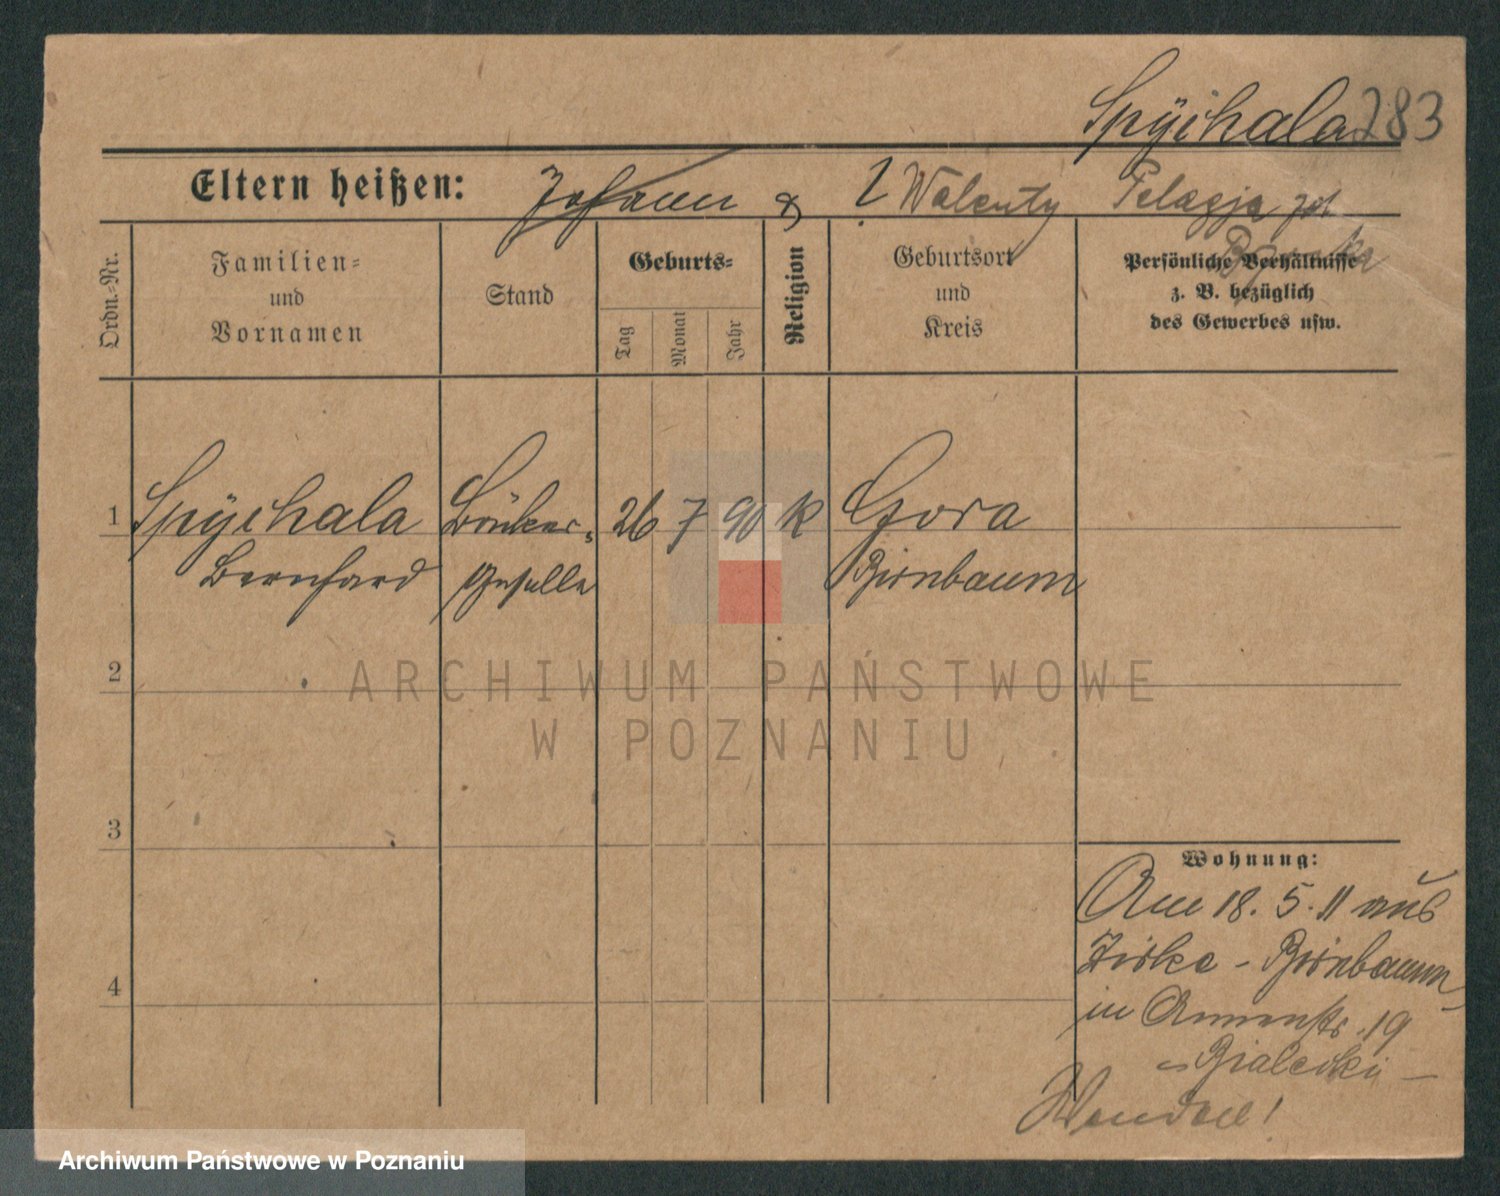 Spÿchala 283
Eltern heißen: Johann & ? Walenty Pelagja
Ordn.=Nr.
Familien=
und
Vornamen
Stand
Geburts=
Tag
Monat
Jahr
Religion
Geburtsort
und
Kreis
Persönliche Verhältnisse
z. B. bezüglich
des Gewerbes usw.
1 Spÿchala 26 7 90 K Gora
Bernhard Geselle Birnbaum
2
3
4
Wohnung:
Am 18. 5. 11 aus
Zirke - Birnbaum
in Annenstr. 19
Bialecki
ARCHIWUM PAŃSTWOWE
W POZNANIU
Archiwum Państwowe w Poznaniu